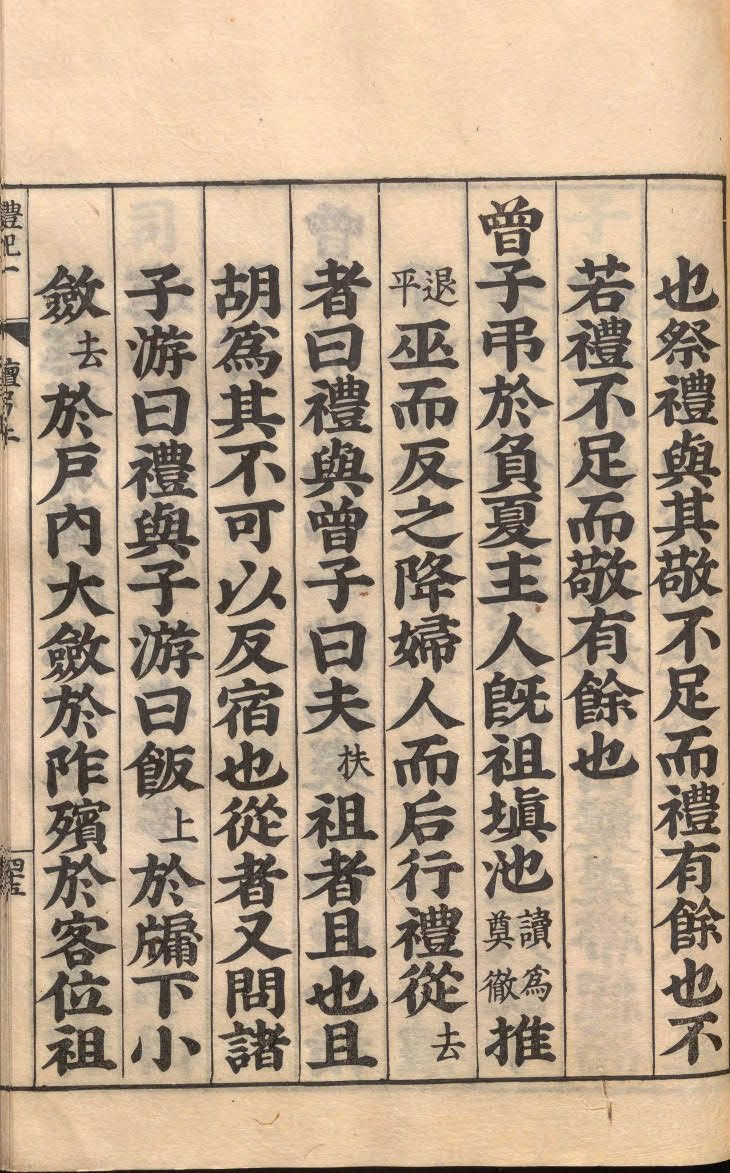 也祭禮與其敬不足而禮有餘也不
若禮不足而敬有餘也
曾子弔於負夏主人旣祖塡池讀爲奠徹推
退平巫而反之降婦人而后行禮從去
者曰禮與曾子曰夫扶祖者且也且
胡爲其不可以反宿也從者又問諸
子游曰禮與子游曰飯上於牖下小
斂去於戶內大斂於阼殯於客位祖
禮記一 檀弓上 四十五